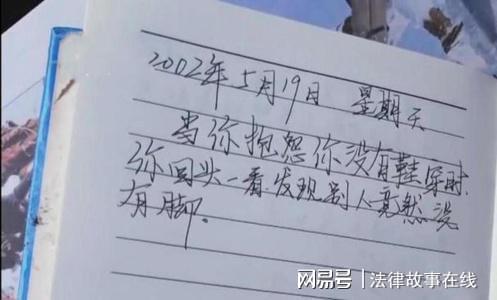 2002年5月19日 星期天
当你抱怨你没有鞋穿时,
你回头一看发现别人竟然没
有脚.
网易号 | 法律故事在线